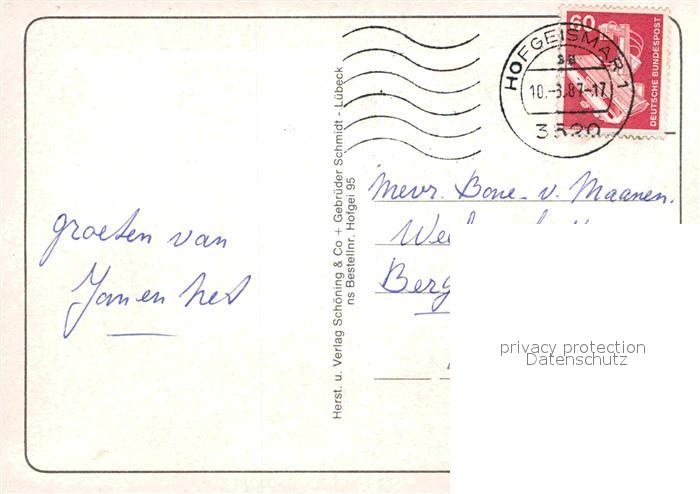 60
DEUTSCHE BUNDESPOST
HOFGEISMAR 1
sa
10.-8.87-17
3520
Herst. u. Verlag Schöning & Co + Gebrüder Schmidt - Lübeck
ns Bestellnr. Hofgei 95
groeten van
Jan en
Mevr. Bone-v. Maanen.
Berg
privacy protection
Datenschutz